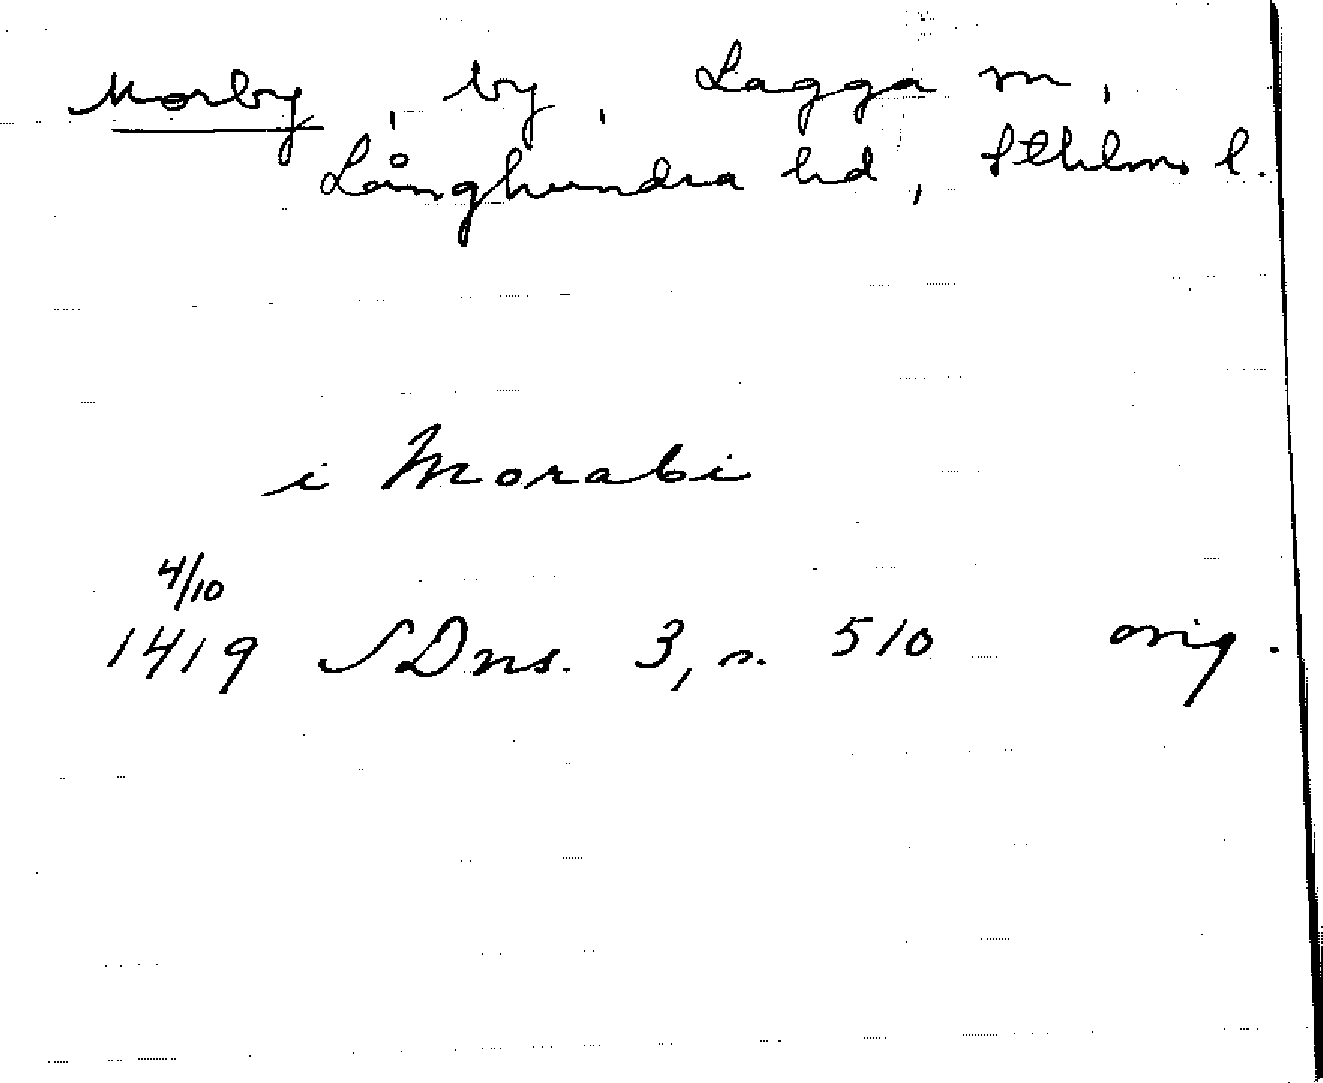 Morby, by, Lagga sn,
Långhundra hd, Sthlms l.
i Morabi
4/10
1419 SDns. 3, s. 510 orig.